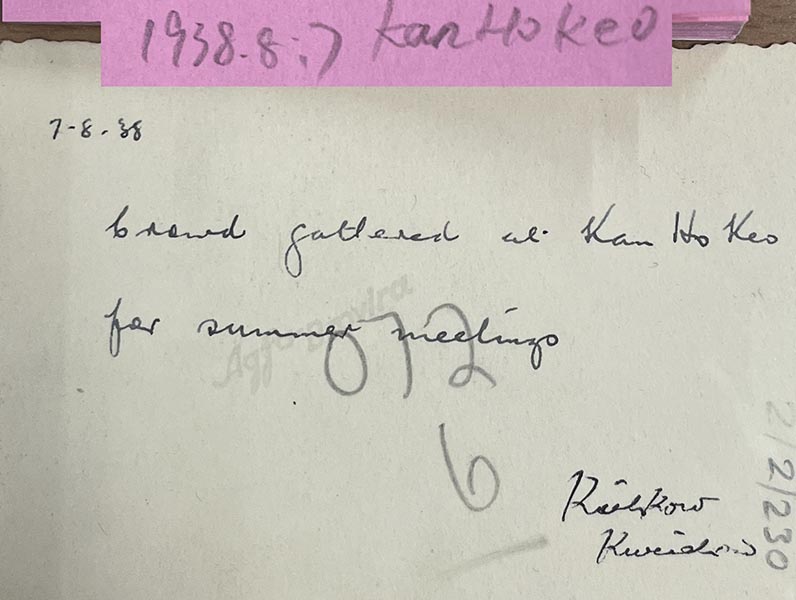 1938.8.7 Kan Ho Keo
7-8.38
Crowd gathered at Kan Ho Keo
for summer meetings
Agfa Brovira
072
6
2/2/230